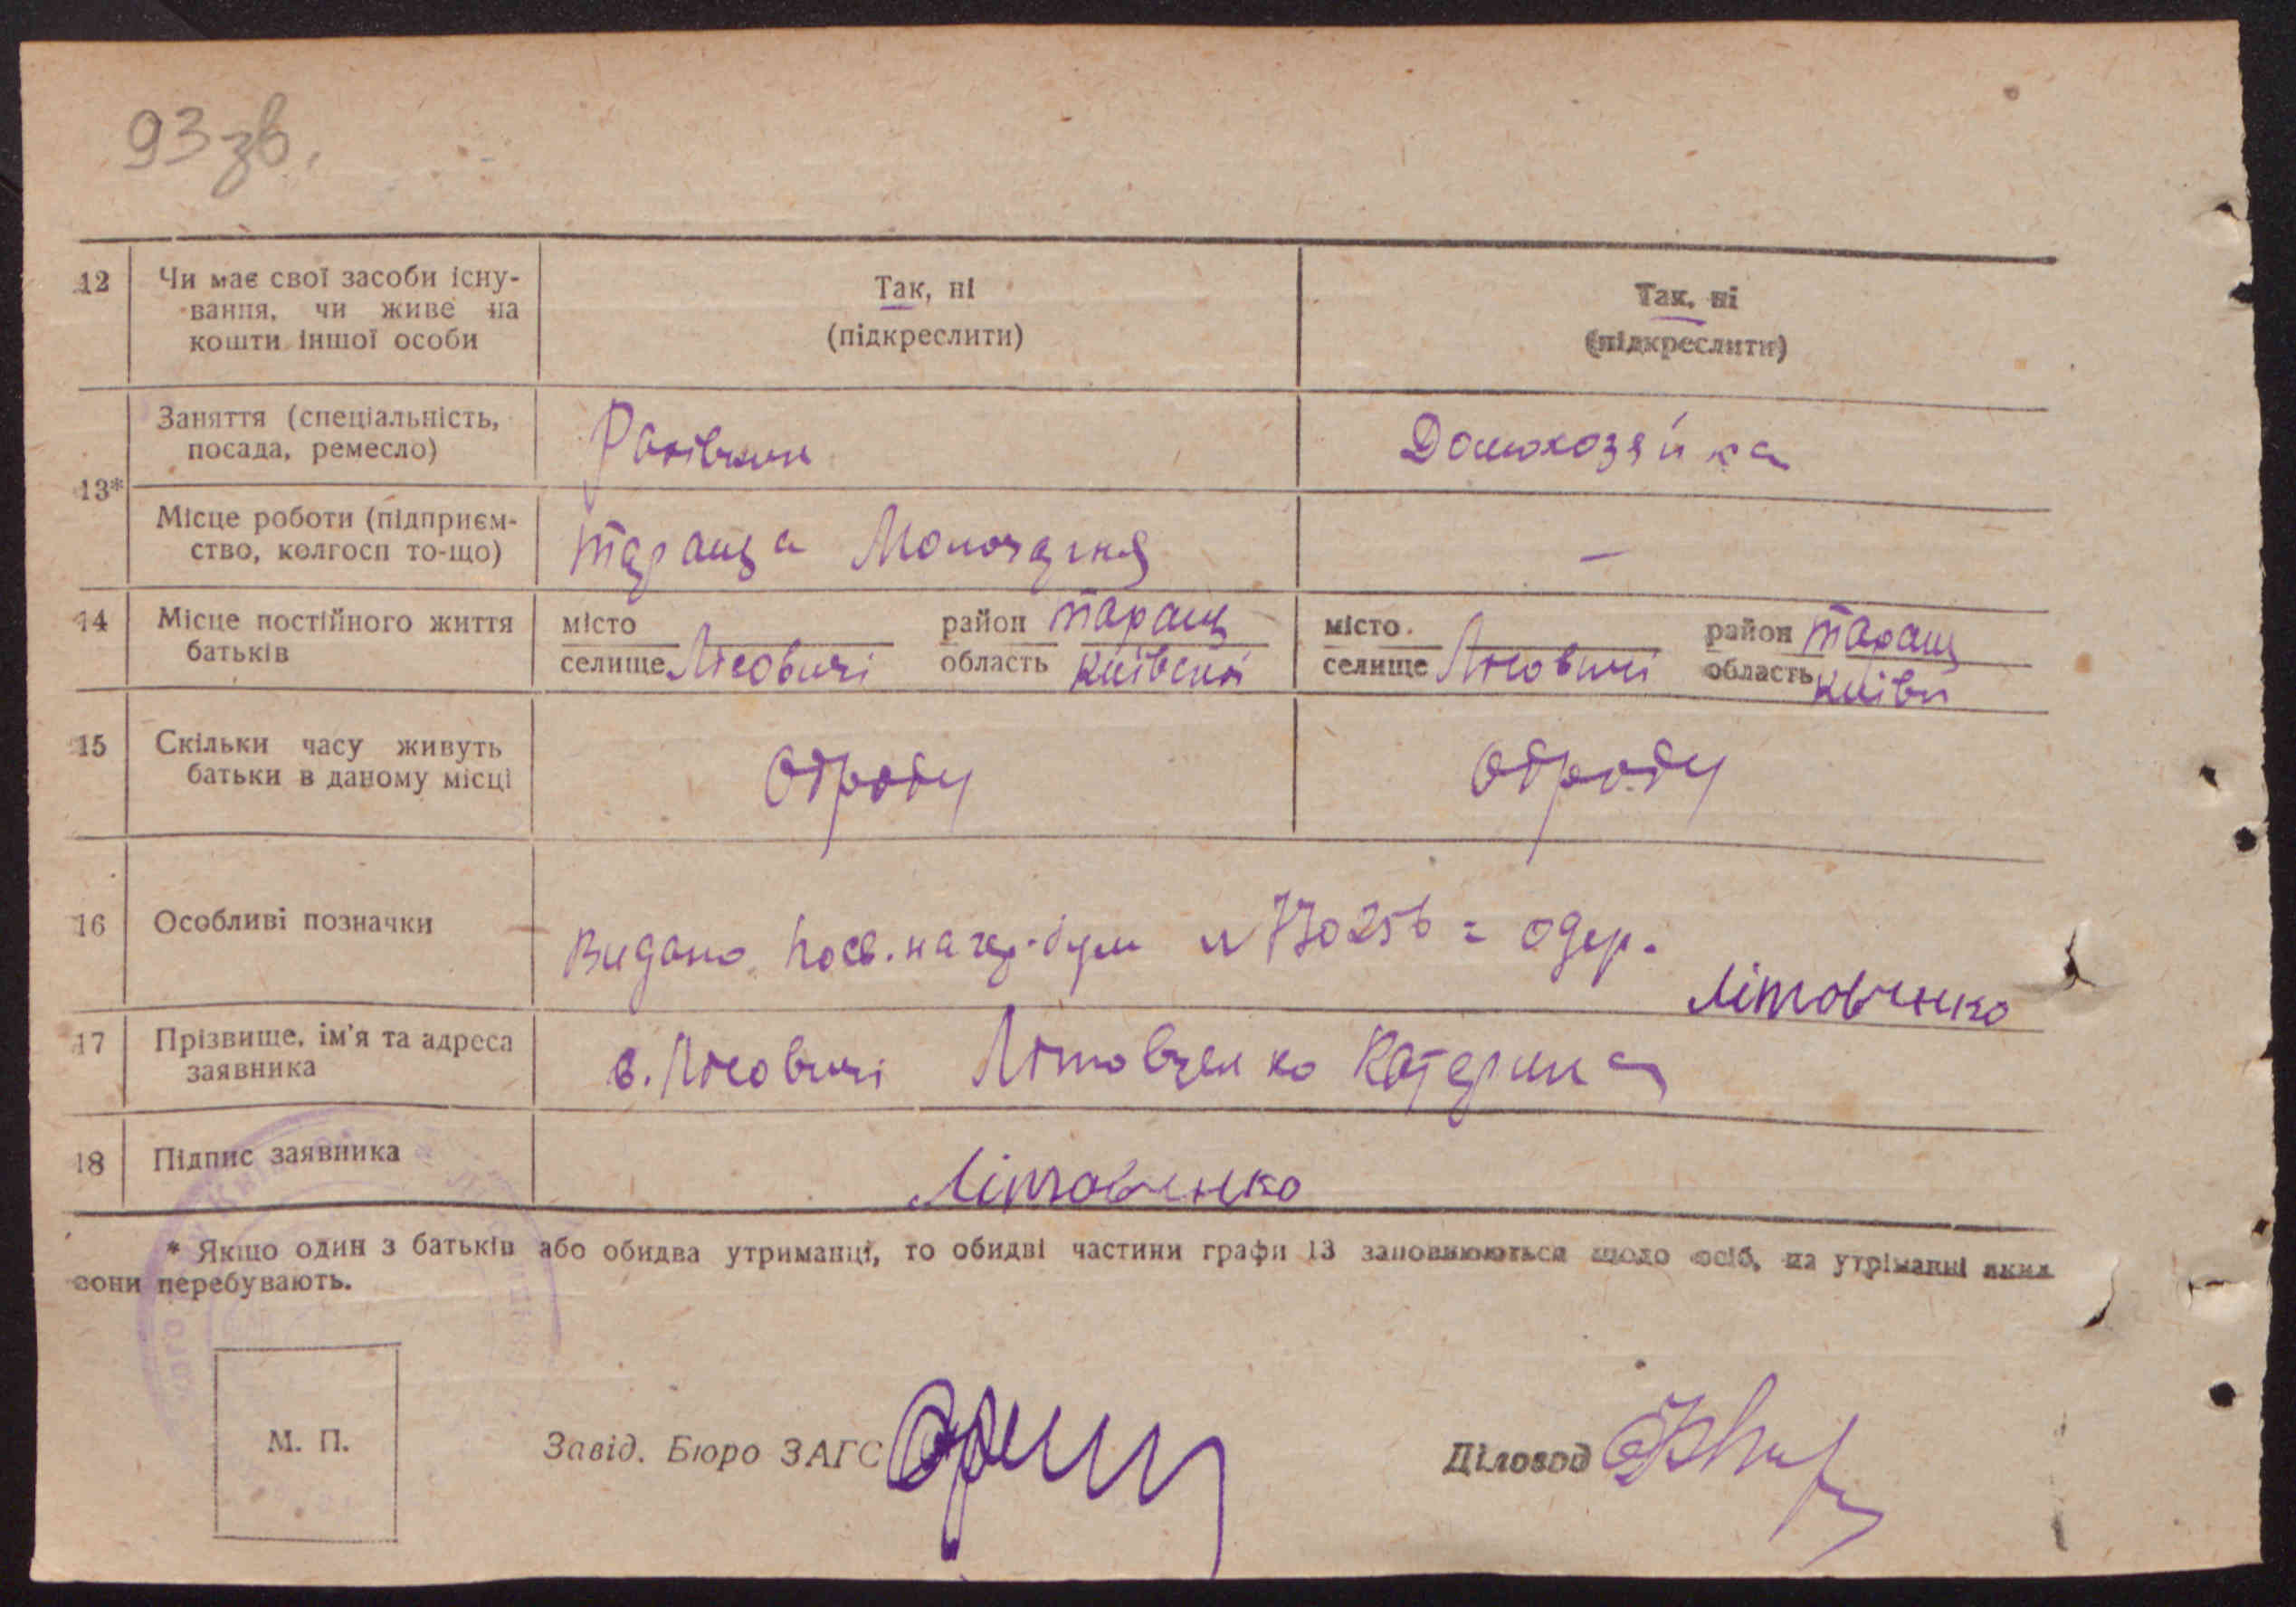 93 зв.
12 Чи має свої засоби існу- Так, ні Так, ні
вання, чи живе на (підкреслити) (підкреслити)
кошти іншої особи
13* Заняття (спеціальність, Домохозяйка
посада, ремесло)
Місце роботи (підприєм- Тараща —
ство, колгосп то-що)
14 Місце постійного життя місто район Таращ місто район Таращ
батьків селище Лісовичі область Київській селище Лісовичі область Київ
15 Скільки часу живуть Одроду Одроду
батьки в даному місці
16 Особливі позначки Видано посв. на гер. бум № 77025б = одер.
Літовченко
17 Прізвище, ім'я та адреса с. Лісовичі Літовченко Катерина
заявника
18 Підпис заявника Літовченко
* Якщо один з батьків або обидва утриманці, то обидві частини графи 13 заповнюються щодо осіб, на утріманні яких
вони перебувають.
М. П. Завід. Бюро ЗАГС Діловод